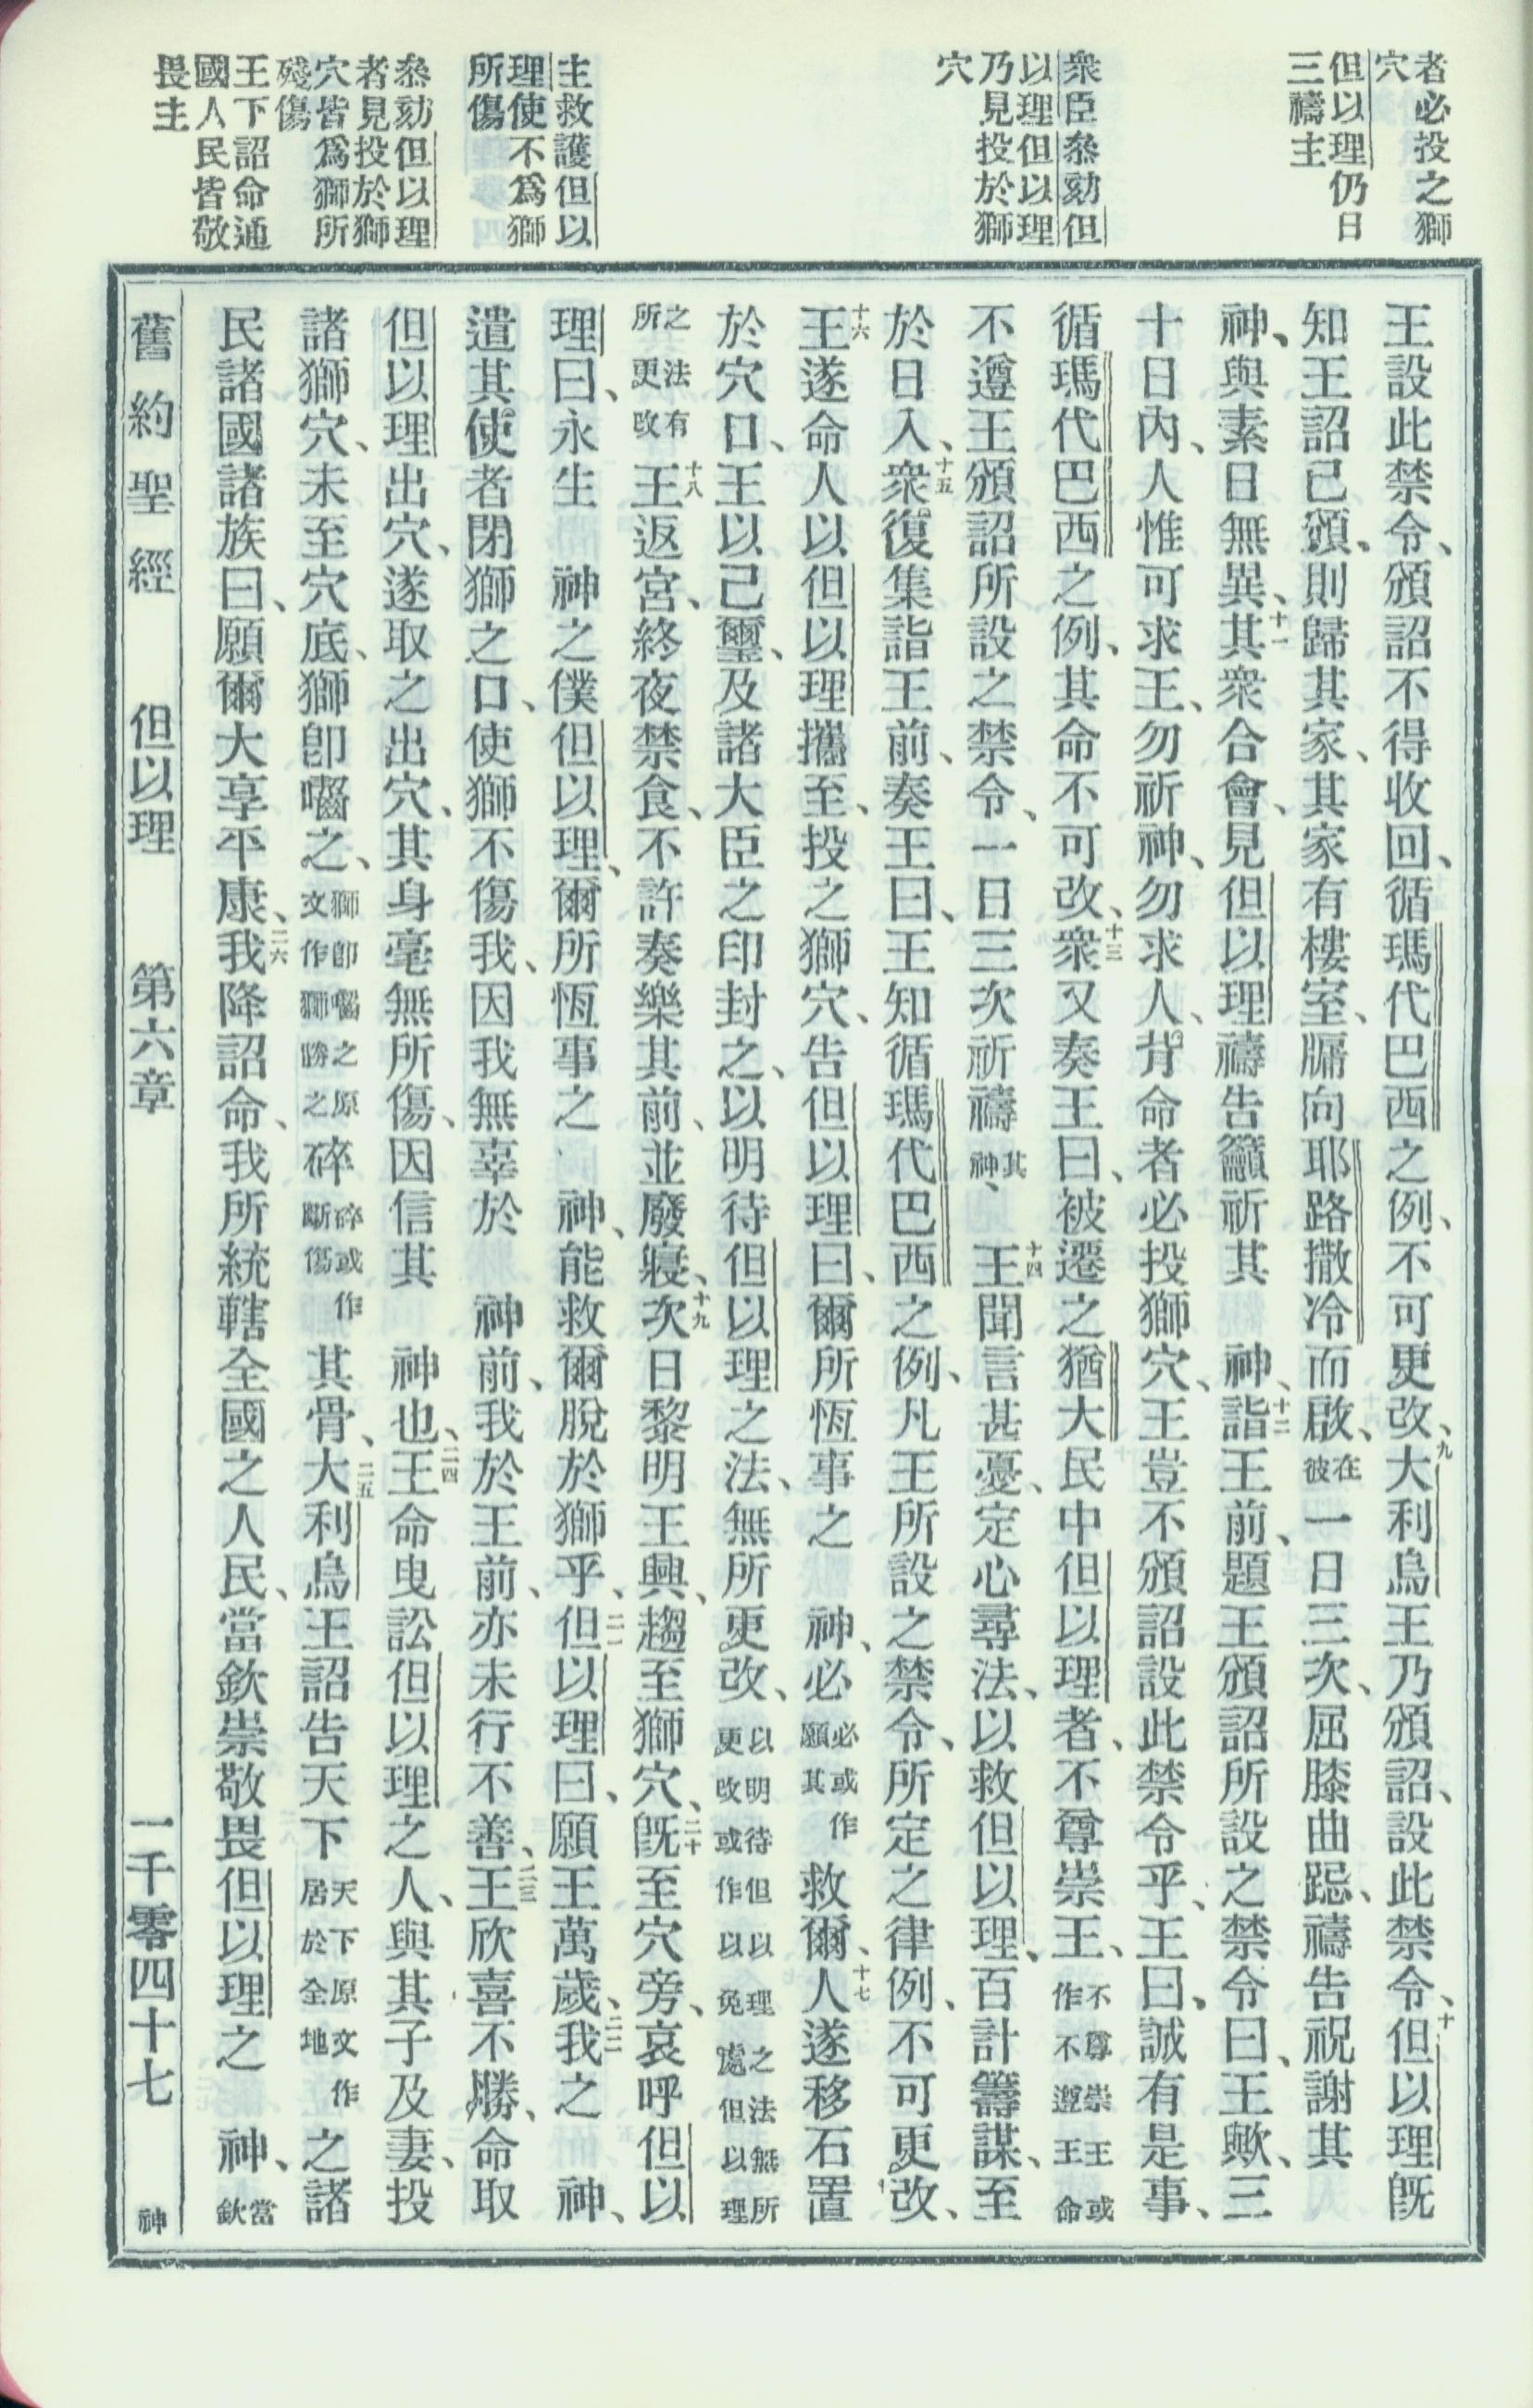 者必投之獅
穴
但以理仍日
三禱主
衆臣叅劾但
以理但以理
乃見投於獅
穴
主救護但以
理使不爲獅
所傷
叅劾但以理
者見投於獅
穴皆爲獅所
殘傷
王下詔命通
國人民皆敬
畏主
王設此禁令、頒詔不得收回、循瑪代巴西之例、不可更改、九大利烏王乃頒詔、設此禁令、十但以理旣
知王詔已頒、則歸其家、其家有樓室、牖向耶路撒冷而啟、在彼一日三次、屈膝曲跽、禱告祝謝其
神、與素日無異、十一其衆合會、見但以理禱告籲祈其 神、十二詣王前、題王頒詔所設之禁令曰、王歟、三
十日內、人惟可求王、勿祈神、勿求人、背命者必投獅穴、王豈不頒詔設此禁令乎、王曰、誠有是事、
循瑪代巴西之例、其命不可改、十三衆又奏王曰、被遷之猶大民中但以理者、不尊崇王、不尊崇王或作不遵王命
不遵王頒詔所設之禁令、一日三次祈禱其神、十四王聞言甚憂、定心尋法、以救但以理、百計籌謀、至
於日入、十五衆復集詣王前、奏王曰、王知循瑪代巴西之例、凡王所設之禁令、所定之律例、不可更改、
十六王遂命人以但以理攜至、投之獅穴、告但以理曰、爾所恆事之 神、必必或作願其救爾、十七人遂移石置
於穴口、王以己璽、及諸大臣之印封之、以明待但以理之法、無所更改、以明待但以理之法無所更改或作以免處但以理
之法有所更改十八王返宮、終夜禁食、不許奏樂其前、並廢寢、十九次日黎明王興、趨至獅穴、二十旣至穴旁、哀呼但以
理曰、永生 神之僕但以理、爾所恆事之 神、能救爾脫於獅乎、二一但以理曰、願王萬歲、二二我之 神、
遣其使者閉獅之口、使獅不傷我、因我無辜於 神前、我於王前、亦未行不善、二三王欣喜不勝、命取
但以理出穴、遂取之出穴、其身毫無所傷、因信其 神也、二四王命曳訟但以理之人、與其子及妻、投
諸獅穴、未至穴底、獅卽嚙之、獅卽嚙之原文作獅勝之碎碎或作斷傷其骨、二五大利烏王詔告天下天下原文作居於全地之諸
民諸國諸族曰、願爾大享平康、二六我降詔命、我所統轄全國之人民、當欽崇敬畏但以理之 神、當欽
舊約聖經 但以理 第六章 一千零四十七 神